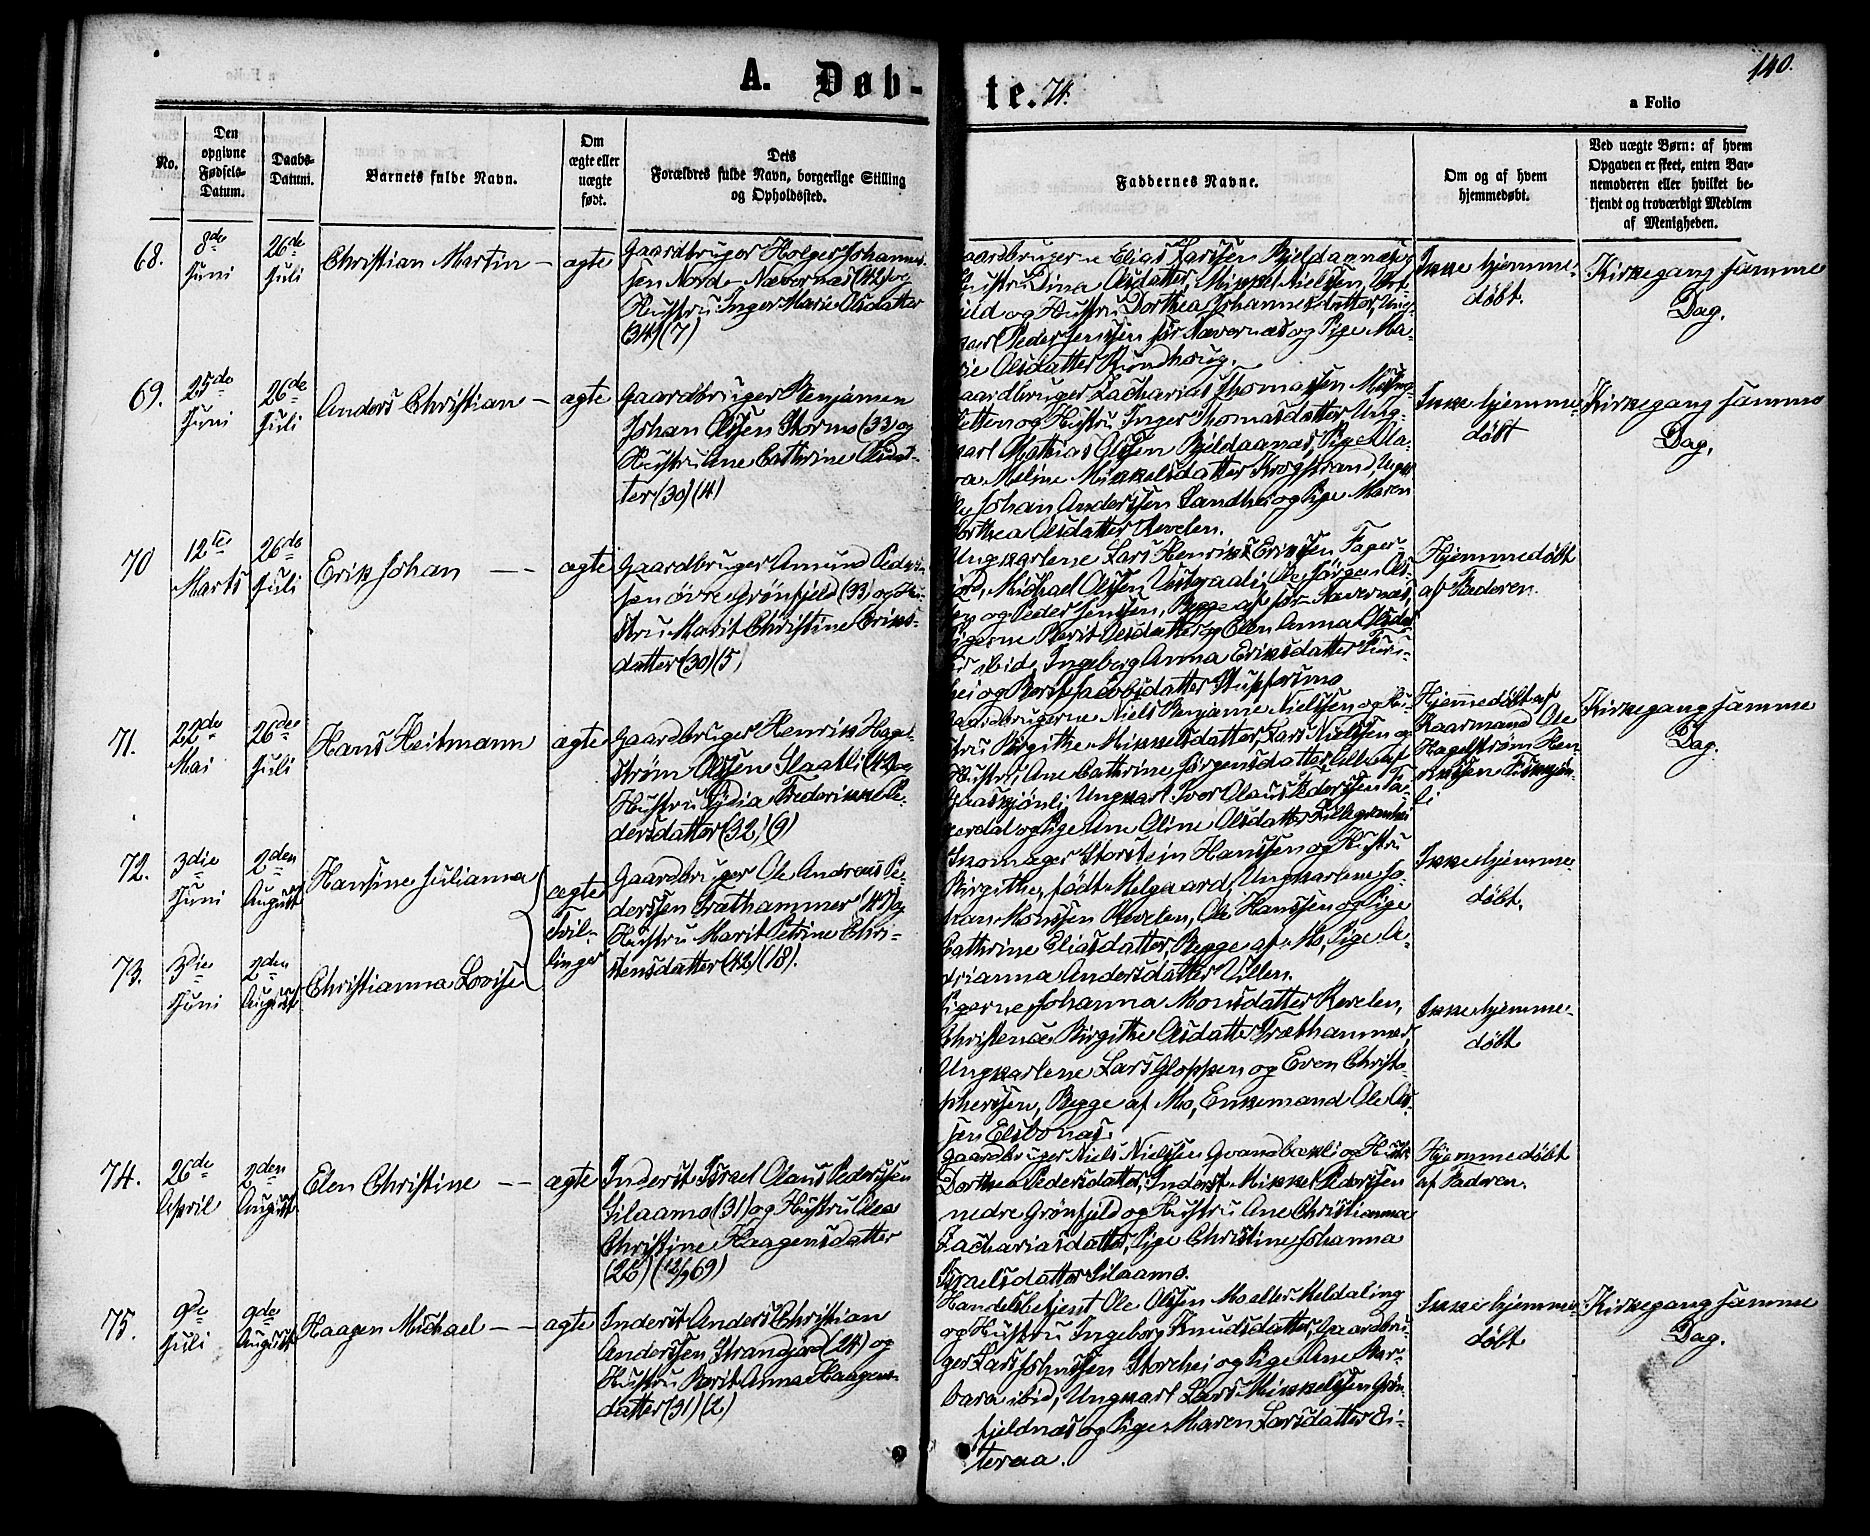 A. Døb-
te. 74.
140.
a Folio
No.
Den
opgivne
Fødsels-
Datum.
Daabs-
Datum.
Barnets fulde Navn.
Om
ægte eller
uægte
født.
Dets
Forældres fulde Navn, borgerlige Stilling
og Opholdssted.
Faddernes Navne.
Om og af hvem
hjemmedøbt.
Ved uægte Børn: af hvem
Opgaven er skeet, enten Bar-
nemoderen eller hvilket be-
kjendt og troværdigt Medlem
af Menigheden.
68.
8de
Juni
26de
Juli
Christian Martin —
ægte
Gaardbruger Holger Johannes-
sen Nordre Nævernæs (42) og
Hustru Inger Marie Olsdatter
(34) (7)
Gaardbrugerne Elias Larssen Bjeldaanæs og
Hustru Dina Olsdatter, Mikkel Nielssen
og Hustru Dorthea Johannesdatter, Ung-
karl Peder Jenssen Nævernæs og Pige Ma-
rie Olsdatter Rundhaug.
Ikke hjemme-
døbt.
Kirkegang samme
Dag.
69.
25de
Juni
26de
Juli
Anders Christian —
ægte
Gaardbruger Benjamin
Johan Olssen Stormo (33) og
Hustru Ane Cathrine Olsdat-
ter (30) (4)
Gaardbruger Zacharias Thomassen
og Hustru Inger Thomasdatter, Ung-
karl Mathias Olssen Bjeldaanæs, Pige Cla-
ra Meline Mikkelsdatter Krogstrand, Ungk
Johan Anderssen Sandhei og Pige Maren
Dorthea Olsdatter Revelen.
Ikke hjemme
døbt
Kirkegang samme
Dag.
70
12te
Marts
26de
Juli
Erik Johan — —
ægte
Gaardbruger Amund Peders-
sen øvre Grønfjeld (33) og Hu-
stru Marit Christine Eriks-
datter (30) (5)
Ungkarlene Lars Henrik Erikssen
Michael Olssen Ole Jørgen Ols-
sen og Peder Jenssen, Begge af Nævernæs,
Pigerne Berit Olsdatter og Elen Anna Olsdat
ter ibid, Ingeborg Anna Eriksdatter Furu-
hei og Berit Jacobsdatter Stupforsmo
Hjemmedøbt
af Faderen.
71.
22de
Mai
26de
Juli
Hans Heitmann
ægte
Gaardbruger Henrik Hagel-
strøm Olssen Slaatli (42) og
Hustru Lydia Frederikke Pe-
dersdatter (32) (9)
Gaardbrugerne Niels Benjamin Nielssen og Hu-
stru Birgithe Mikkelsdatter, Lars Nielssen og
Hustru Ane Cathrine Jørgensdatter, alle af
Ungkarl Iver Olaus Pederssen
og Pige Ane Oline Olsdatter
Hjemmedøbt af
Kaarmand Ole
Hagelstrøm Hen-
rikssen
Kirkegang samme
Dag.
72.
3die
Juni
2den
August
Hansine Julianna
ægte
Tvil-
linger
Gaardbruger Ole Andreas Pe-
derssen Træthammer (47) og
Hustru Marit Petrine Chri-
stensdatter (42) (18).
Skomager Storstein Hanssen og Hustru
Birgithe, født Melgaard, Ungkarlene Jo-
han Monssen Revelen, Ole Hanssen og Pige
Cathrine Eliasdatter, Begge af Mo, Pige A-
drianna Andersdatter Villen.
Ikke hjemme-
døbt.
73.
3die
Juni
2den
August
Christianna Lovise
Pigerne Johanna Monsdatter Revelen,
Christence Birgithe Olsdatter Træthammer,
Ungkarlene Lars Gloppen og Even Christo-
pherssen, Begge af Mo, Enkemand Ole Ols-
sen Elsbonæs.
Ikke hjemme-
døbt
74.
26de
April
2den
August
Elen Christine — —
ægte
Inderst Israel Olaus Pederssen
Silaamo (31) og Hustru Olea
Christine Haagensdatter
(26) (12/9 69)
Gaardbruger Niels Nielssen Qvandbækli og Hustr
Dorthea Pedersdatter, Inderst Mikkel Pederssen
nedre Grønfjeld og Hustru Ane Christianna
Zachariasdatter, Pige Christine Johanna
Israelsdatter Silaamo.
Hjemmedøbt
af Faderen.
75.
9de
Juli
9de
August
Haagen Michael — —
ægte
Inderst Anders Christian
Anderssen Strandjord (24) og
Hustru Berit Anna Haagens-
datter (31) (2)
Handelsbetjent Ole Olssen Moeller Meldaling
og Hustru Ingeborg Knudsdatter, Gaardbru-
ger Lars Johnssen Storehei og Pige Ane Bar-
bara ibid, Ungkarl Lars Mikkelssen Grøn-
fjeldnæs og Pige Maren Larsdatter Ei-
teraa.
Ikke hjemme-
døbt
Kirkegang samme
Dag.